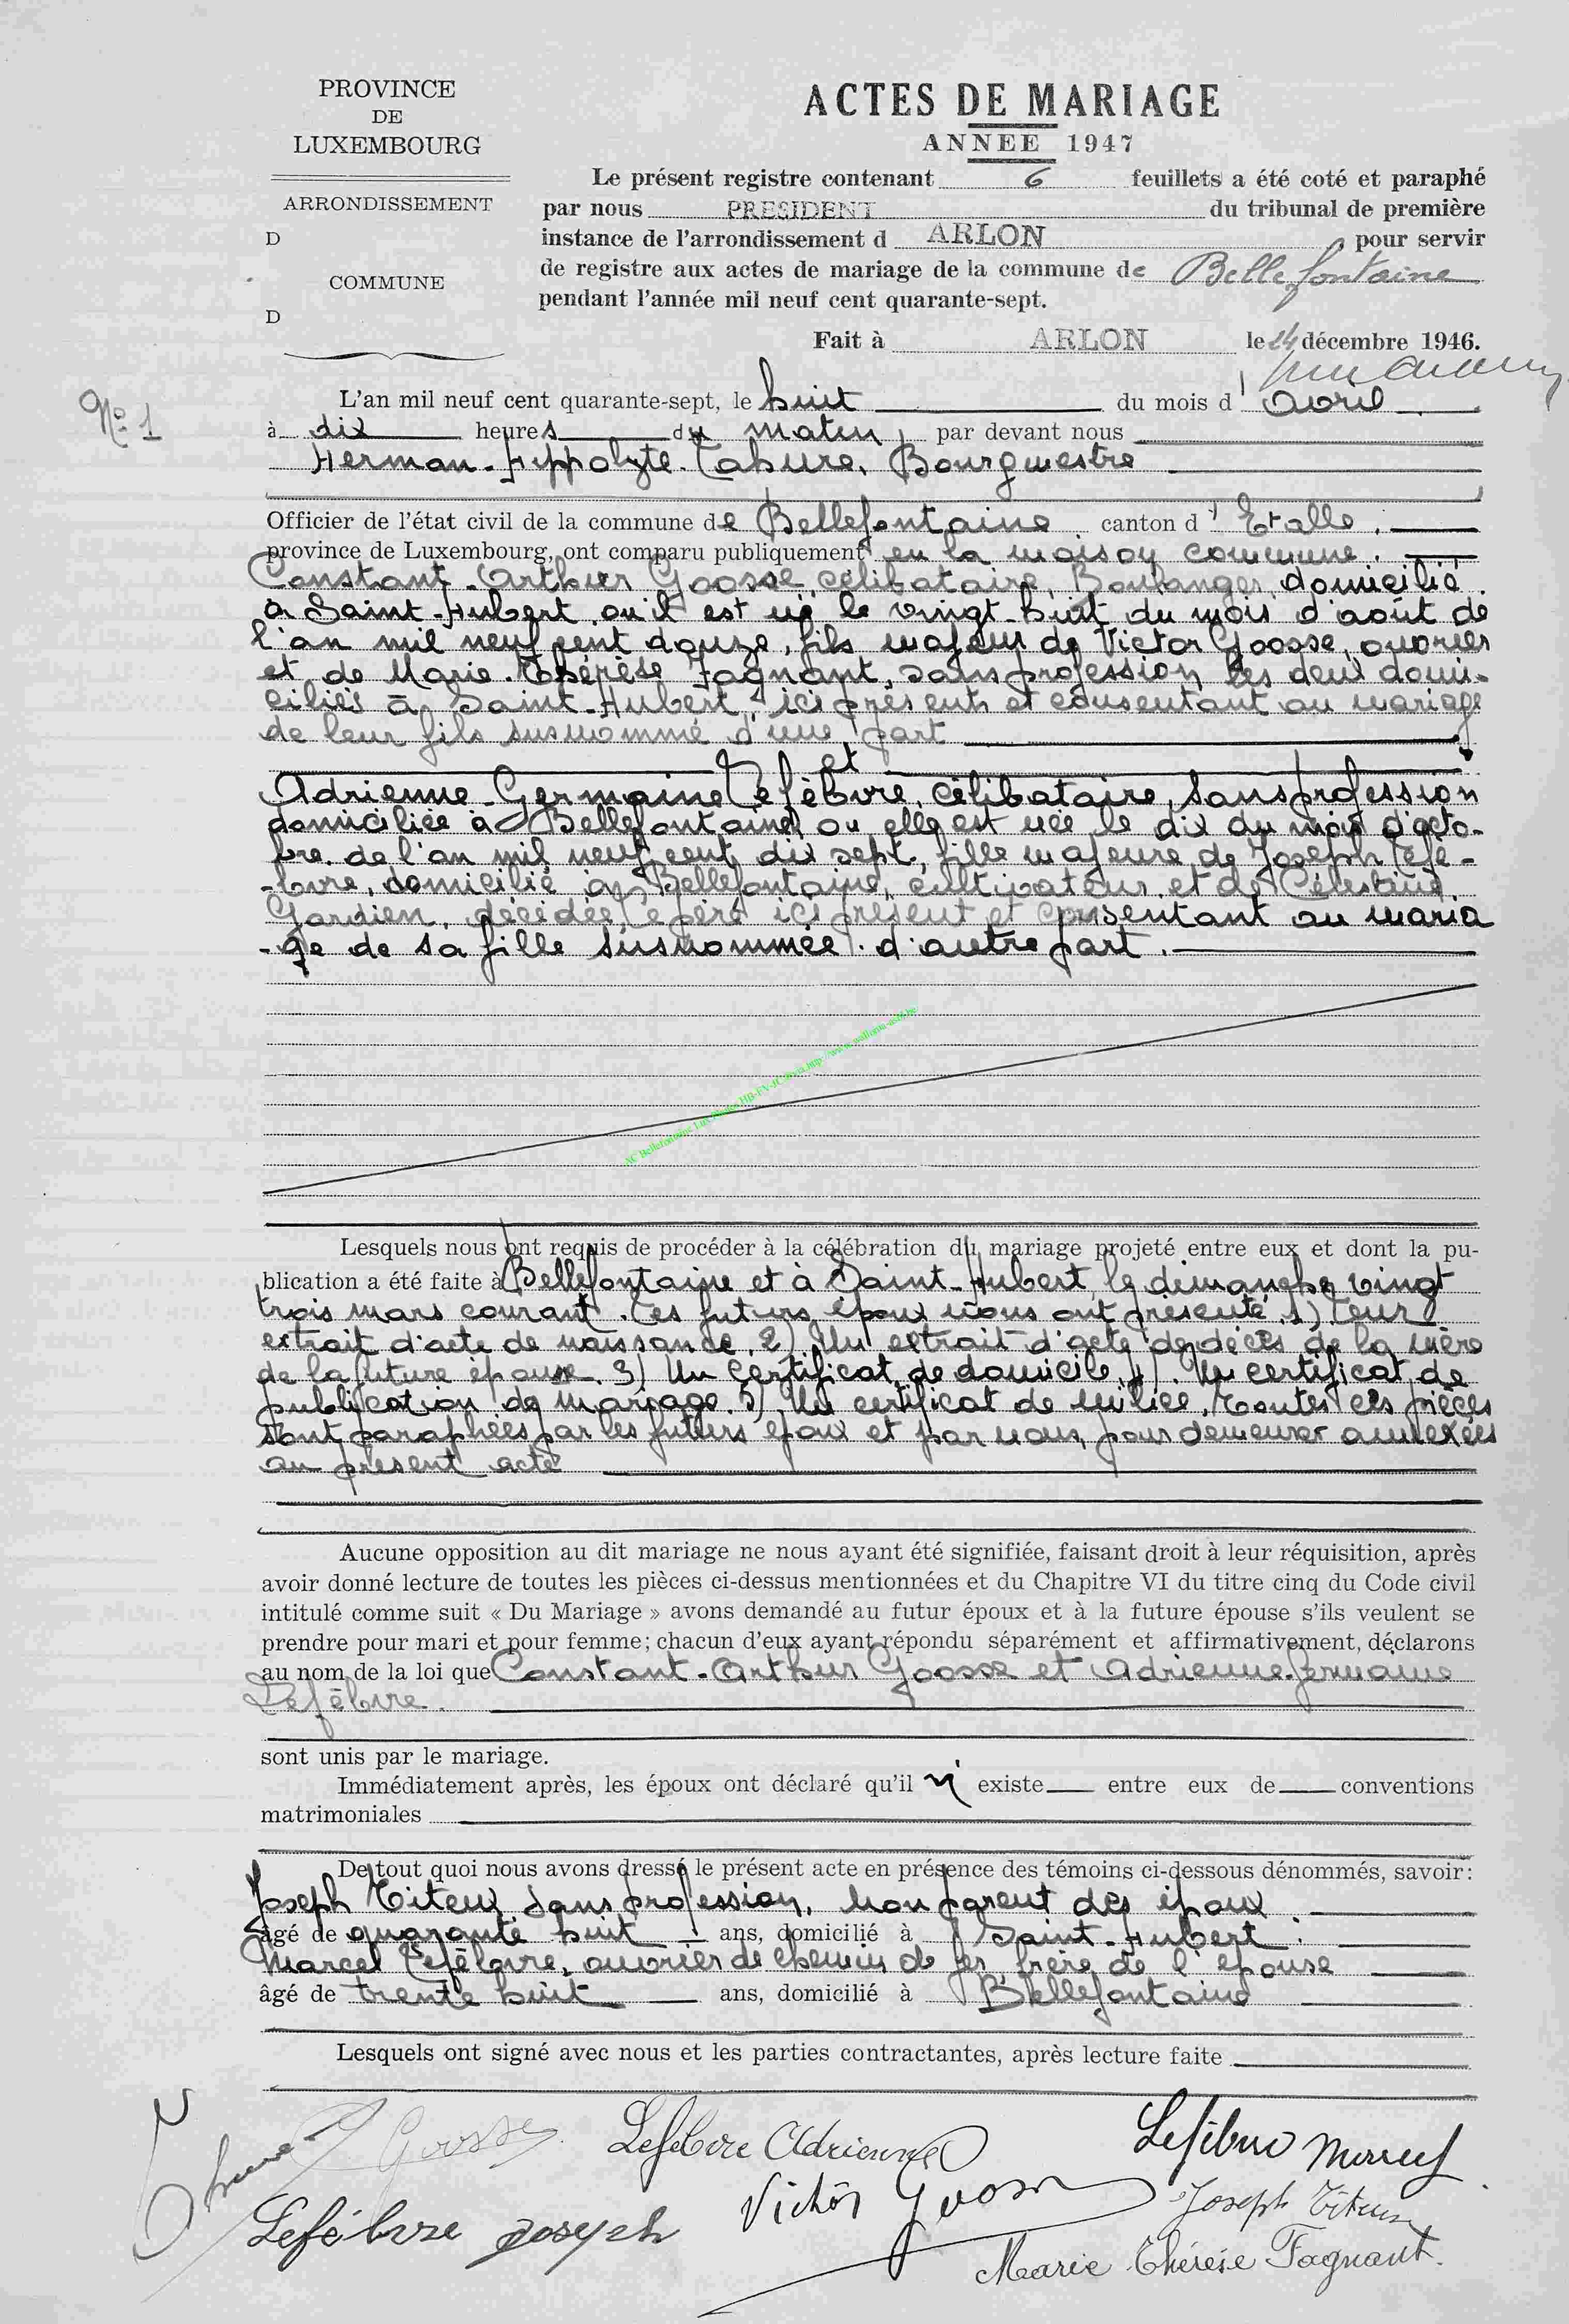 PROVINCE
DE
LUXEMBOURG
ARRONDISSEMENT
D
COMMUNE
D
ACTES DE MARIAGE
ANNEE 1947
Le présent registre contenant 6 feuillets a été coté et paraphé
par nous PRESIDENT du tribunal de première
instance de l'arrondissement d ARLON pour servir
de registre aux actes de mariage de la commune de Bellefontaine
pendant l'année mil neuf cent quarante-sept.
Fait à ARLON le 24 décembre 1946.
N° 1
L'an mil neuf cent quarante-sept, le huit du mois d' avril
à dix heures du matin, par devant nous
Herman-Hippolyte Lahure, Bourgmestre
Officier de l'état civil de la commune de Bellefontaine canton d' Etalle,
province de Luxembourg, ont comparu publiquement en la maison commune.
Constant-Arthur Goosse, célibataire, Boulanger, domicilié
à Saint-Hubert, où il est né le vingt-huit du mois d'août de
l'an mil neuf cent douze, fils majeur de Victor Goosse, ouvrier
et de Marie-Thérèse Fagnant, sans profession, les deux domi-
ciliés à Saint-Hubert, ici présents et consentant au mariage
de leur fils susnommé d'une part
et
Adrienne-Germaine Lefèbvre, célibataire, sans profession
domiciliée à Bellefontaine, où elle est née le dix du mois d'octo-
bre de l'an mil neuf cent dix sept, fille majeure de Joseph Lefè-
-bvre, domicilié à Bellefontaine, cultivateur et de Célestine
Gardien, décédée, le père ici présent et consentant au maria
-ge de sa fille susnommée. d'autre part.
AC Bellefontaine Lux
Lesquels nous ont requis de procéder à la célébration du mariage projeté entre eux et dont la pu-
blication a été faite à Bellefontaine et à Saint-Hubert, le dimanche vingt
trois mars courant. Les futurs époux nous ont présenté, 1) Leur
extrait d'acte de naissance, 2). Un extrait d'acte de décès de la mère
de la future épouse. 3) Un certificat de domicile, 4). Un certificat de
publication de mariage. 5) Un certificat de milice. Toutes ces pièces
sont paraphées par les futurs époux et par nous, pour demeurer annexées
au présent acte
Aucune opposition au dit mariage ne nous ayant été signifiée, faisant droit à leur réquisition, après
avoir donné lecture de toutes les pièces ci-dessus mentionnées et du Chapitre VI du titre cinq du Code civil
intitulé comme suit « Du Mariage » avons demandé au futur époux et à la future épouse s'ils veulent se
prendre pour mari et pour femme; chacun d'eux ayant répondu séparément et affirmativement, déclarons
au nom de la loi que Constant-Arthur Goosse et Adrienne-Germaine
Lefèbvre.
sont unis par le mariage.
Immédiatement après, les époux ont déclaré qu'il n' existe entre eux de conventions
matrimoniales
De tout quoi nous avons dressé le présent acte en présence des témoins ci-dessous dénommés, savoir:
Joseph Titeux, sans profession, non parent des époux
âgé de quarante huit ans, domicilié à Saint-Hubert.
Marcel Lefèbvre, ouvrier de chemin de fer, frère de l'épouse
âgé de trente huit ans, domicilié à Bellefontaine
Lesquels ont signé avec nous et les parties contractantes, après lecture faite
Goosse Lefebvre Adrienne Lefebvre Marcel
Victor Goosse Joseph Titeux
Lefèbvre Joseph
Marie Thérèse Fagnant.